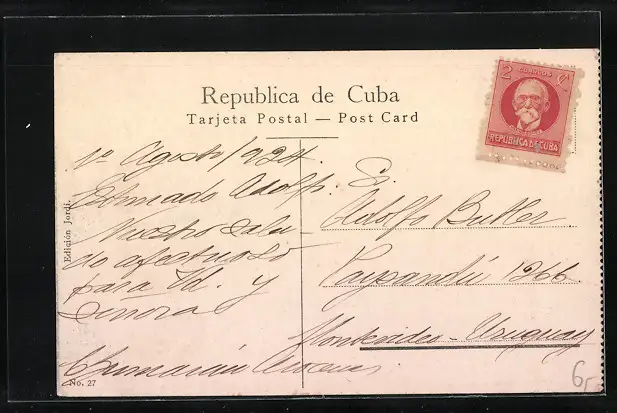 Republica de Cuba
Tarjeta Postal — Post Card
2 CORREOS
REPUBLICA DE CUBA
1º Agosto/924.
Estimado Adolfo.
Nuestro salu-
do afectuoso
para Ud. y
Señora
Sr.
Adolfo Butler
Paysandú 1266.
Montevideo - Uruguay
Edición Jordi.
No. 27
6/